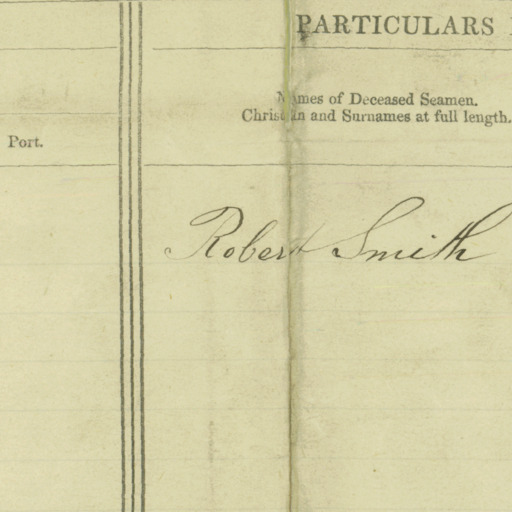 PARTICULARS
Names of Deceased Seamen.
Christian and Surnames at full length.
Port.
Robert Smith